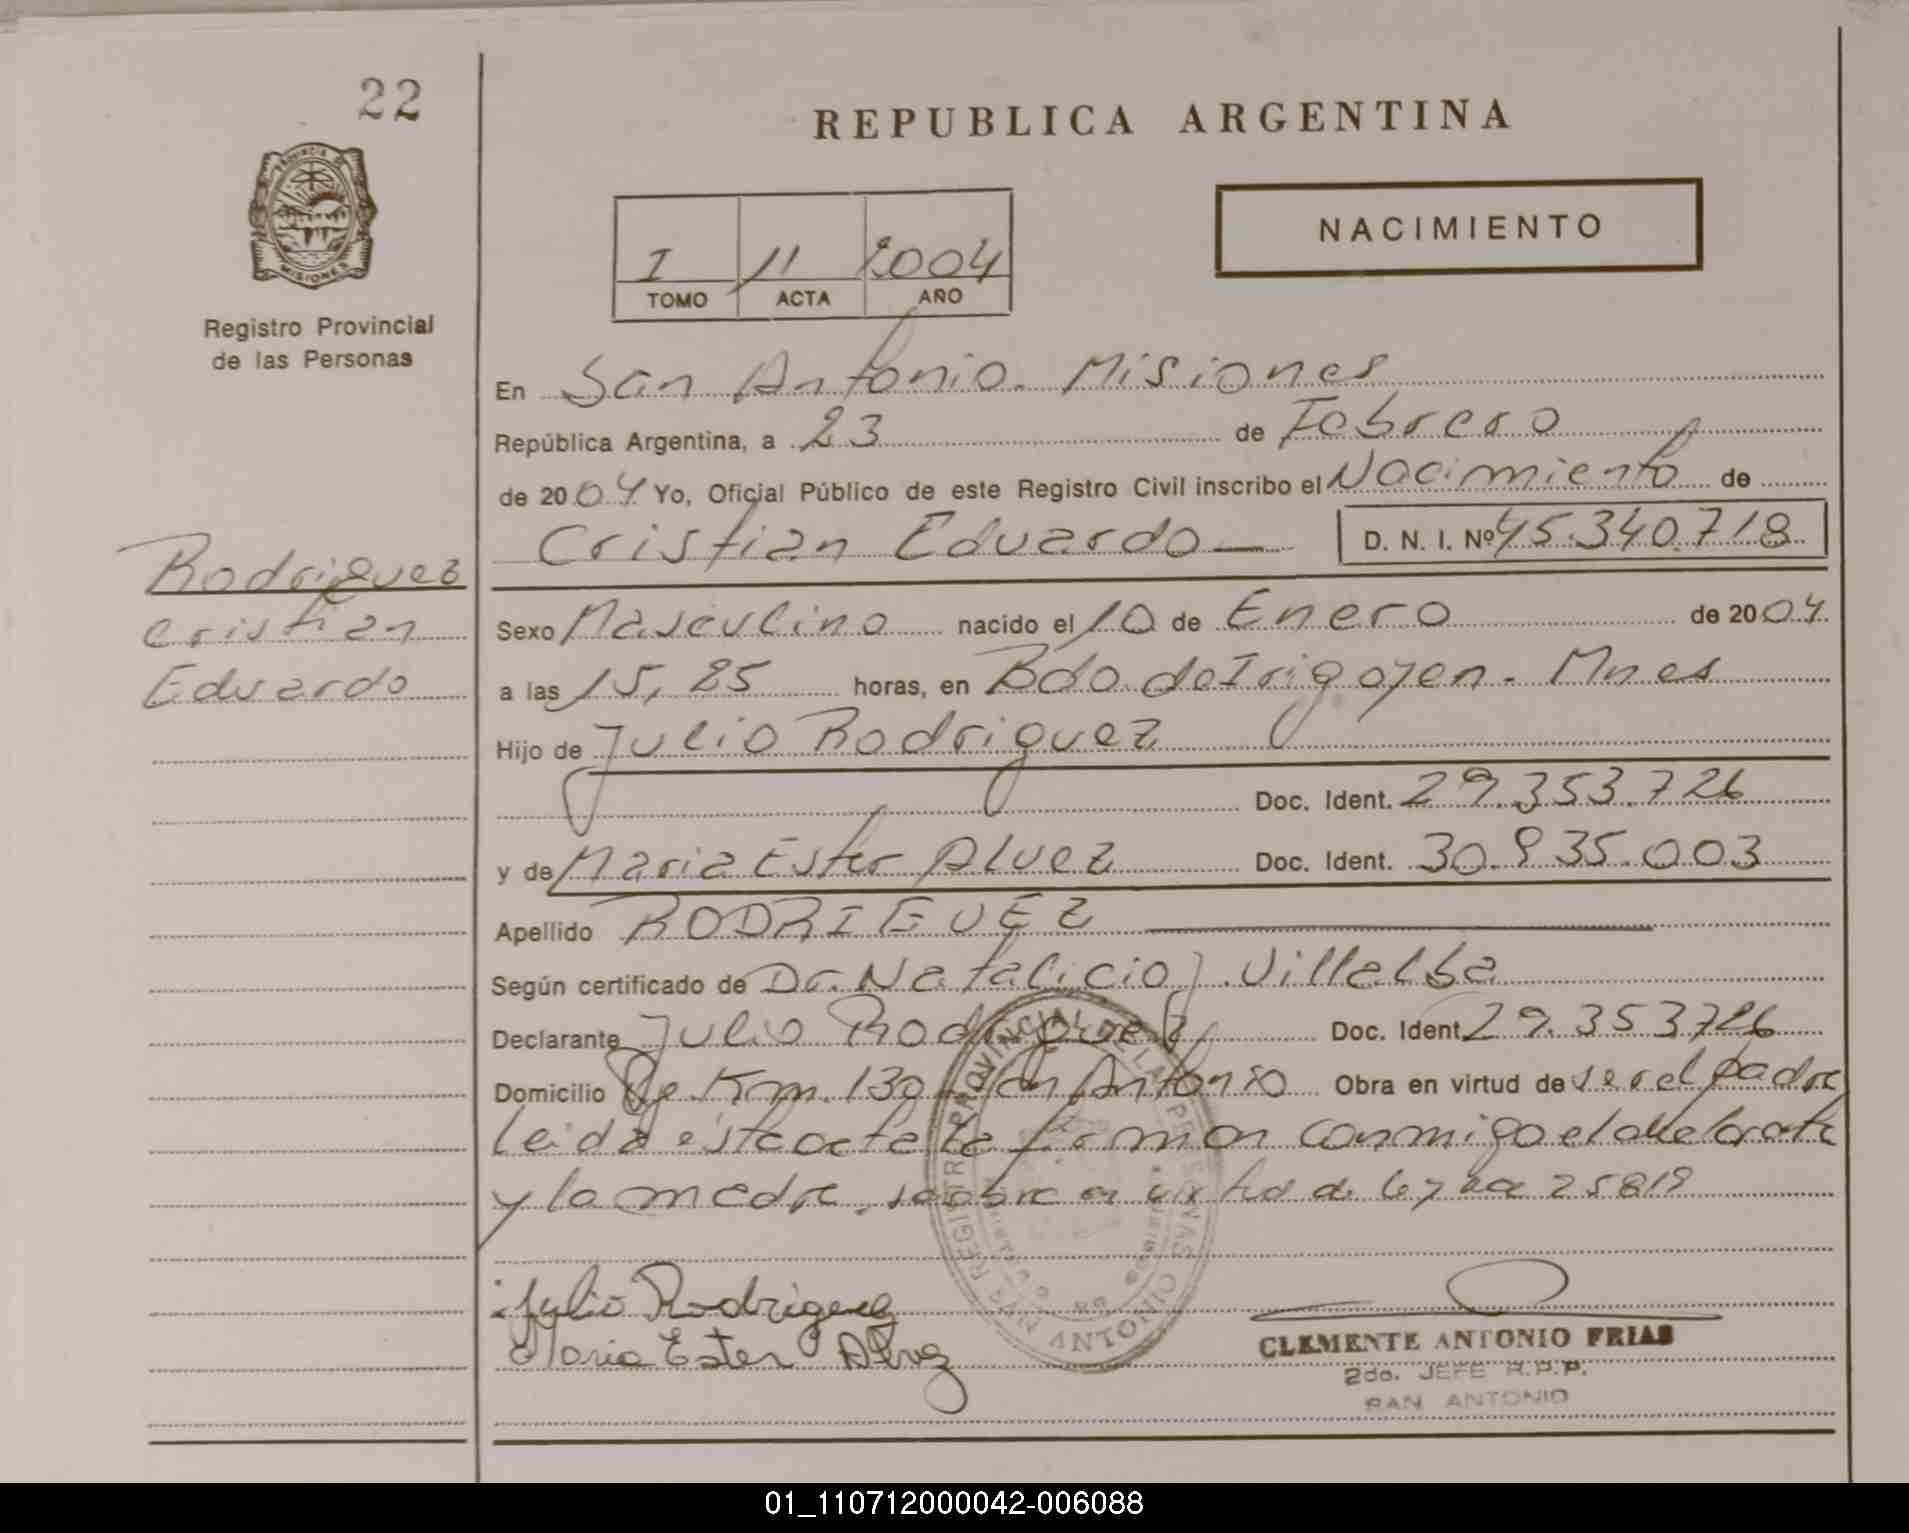 22
PROVINCIA DE
MISIONES
Registro Provincial
de las Personas
REPUBLICA ARGENTINA
NACIMIENTO
I 11 2004
TOMO ACTA AÑO
En San Antonio. Misiones
República Argentina, a 23 de Febrero
de 2004 Yo, Oficial Público de este Registro Civil inscribo el Nacimiento de
Cristian Eduardo — D. N. I. Nº 45.340.718
Rodriguez
Cristian
Eduardo
Sexo Masculino nacido el 10 de Enero de 2004
a las 15,25 horas, en Bdo. de Irigoyen. Mnes
Hijo de Julio Rodriguez
Doc. Ident. 29.353.726
y de Maria Ester Alvez Doc. Ident. 30.935.003
Apellido RODRIGUEZ
Según certificado de Dr. Natalicio J. Villalba
Declarante Julio Rodriguez Doc. Ident. 29.353726
Domicilio Km. 130 San Antonio Obra en virtud de ser el padre
Leida esta acta la firman conmigo el declarante
y la madre, se obra en virtud de ley 25819
REGISTRO PROVINCIAL DE LAS PERSONAS
SAN ANTONIO
MISIONES
Julio Rodriguez
Maria Ester Alvez
CLEMENTE ANTONIO FRIAS
2do. JEFE R.P.P.
SAN ANTONIO
01_110712000042-006088